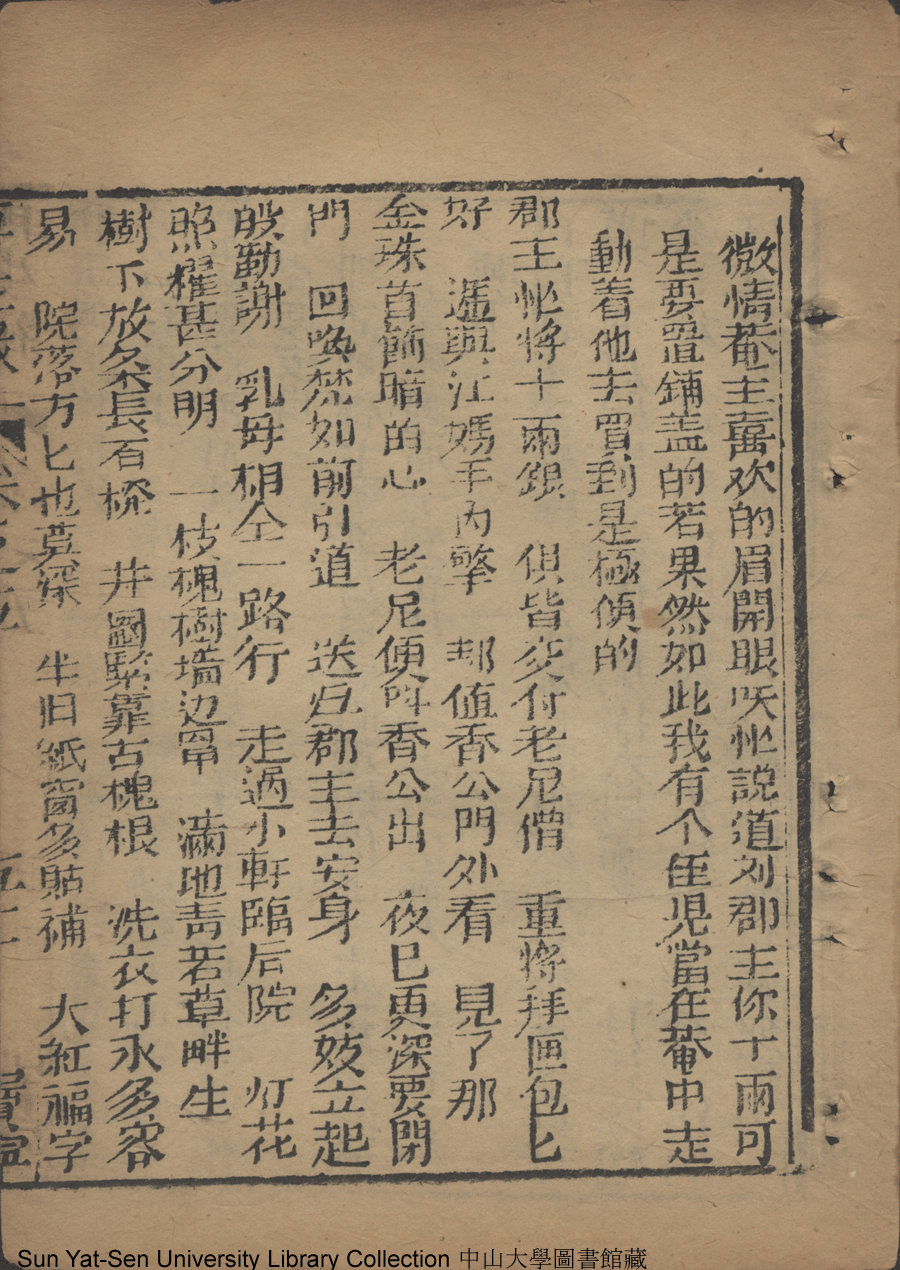 微情菴主喜欢的眉開眼咲忙説道刘郡主你十兩可
是要置鋪盖的若果然如此我有个侄児當在菴中走
動着他去買到是極便的
郡王忙将十兩銀　俱皆交付老尼僧　重将拜匣包匕
好　遞與江媽手内擎　却値香公門外看　見了那
金珠首飾暗的心　老尼便呌香公出　夜已更深要閉
門　回喚梵如前引道　送过郡主去安身　多妓立起
殷勤謝　乳母相仝一路行　走過小軒臨后院　灯花
照耀甚分明　一枝槐樹墙边罩　滿地靑若草畔生
樹下放条長石櫈　井圈緊靠古槐根　洗衣打水多容
易　院落方匕也莫深　半旧紙窗多貼補　大紅福字